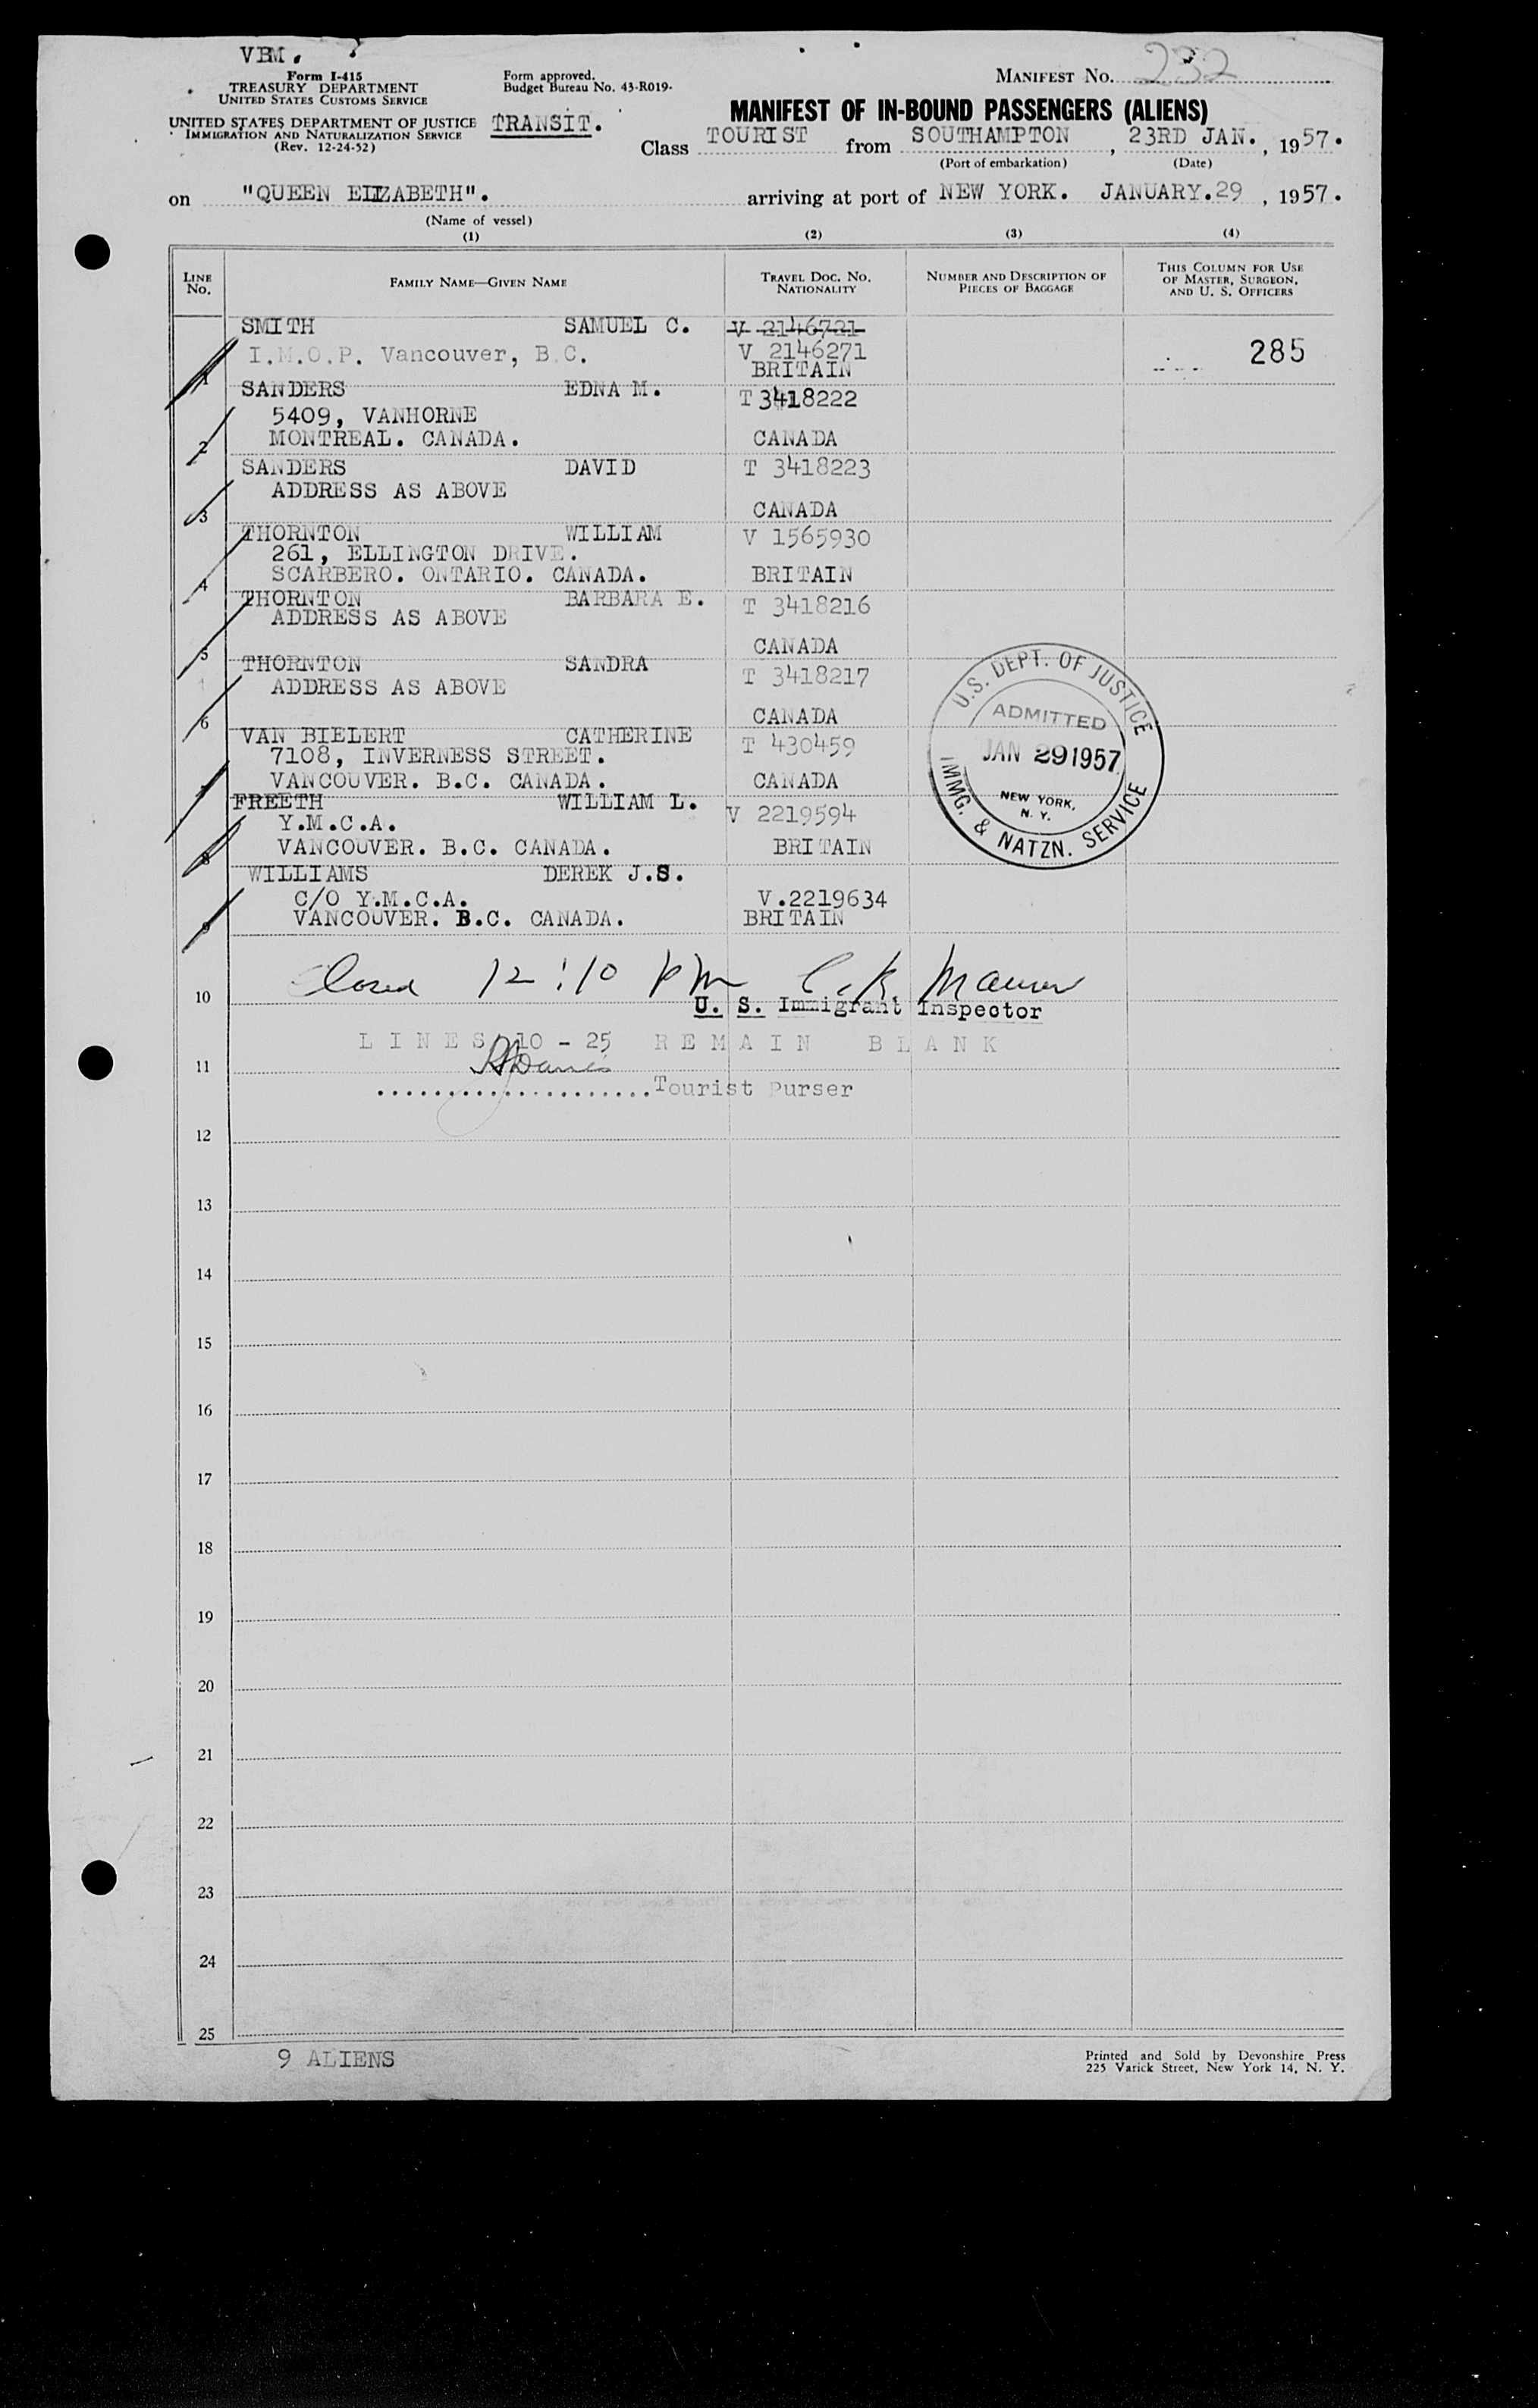 VBM.
Form I-415
TREASURY DEPARTMENT
UNITED STATES CUSTOMS SERVICE
UNITED STATES DEPARTMENT OF JUSTICE
IMMIGRATION AND NATURALIZATION SERVICE
(Rev. 12-24-52)
Form approved.
Budget Bureau No. 43-R019-
TRANSIT.
MANIFEST NO. 232
MANIFEST OF IN-BOUND PASSENGERS (ALIENS)
Class TOURIST from SOUTHAMPTON, 23RD JAN., 1957.
(Port of embarkation) (Date)
on "QUEEN ELIZABETH". arriving at port of NEW YORK. JANUARY.29, 1957.
(Name of vessel)
(1) (2) (3) (4)
LINE NO. FAMILY NAME—GIVEN NAME TRAVEL DOC. NO. NATIONALITY NUMBER AND DESCRIPTION OF PIECES OF BAGGAGE THIS COLUMN FOR USE OF MASTER, SURGEON, AND U. S. OFFICERS
SMITH SAMUEL C. V 2146721
I.M.O.P. Vancouver, B.C. V 2146271 285
1 BRITAIN
SANDERS EDNA M. T 3418222
5409, VANHORNE
2 MONTREAL. CANADA. CANADA
SANDERS DAVID T 3418223
ADDRESS AS ABOVE
3 CANADA
THORNTON WILLIAM V 1565930
261, ELLINGTON DRIVE.
4 SCARBERO. ONTARIO. CANADA. BRITAIN
THORNTON BARBARA E. T 3418216
ADDRESS AS ABOVE
5 CANADA
THORNTON SANDRA T 3418217
ADDRESS AS ABOVE
6 CANADA
VAN BIELERT CATHERINE T 430459
7108, INVERNESS STREET.
7 VANCOUVER. B.C. CANADA. CANADA
FREETH WILLIAM L. V 2219594
Y.M.C.A.
8 VANCOUVER. B.C. CANADA. BRITAIN
WILLIAMS DEREK J.S.
C/O Y.M.C.A. V.2219634
9 VANCOUVER. B.C. CANADA. BRITAIN
U.S. DEPT. OF JUSTICE
ADMITTED
JAN 29 1957
NEW YORK,
N. Y.
IMMG. & NATZN. SERVICE
Closed 12:10 PM C. K.
10
U. S. Immigrant Inspector
LINES 10 - 25 REMAIN BLANK
11
....................Tourist Purser
12
13
14
15
16
17
18
19
20
21
22
23
24
25
9 ALIENS
Printed and Sold by Devonshire Press
225 Varick Street, New York 14, N. Y.